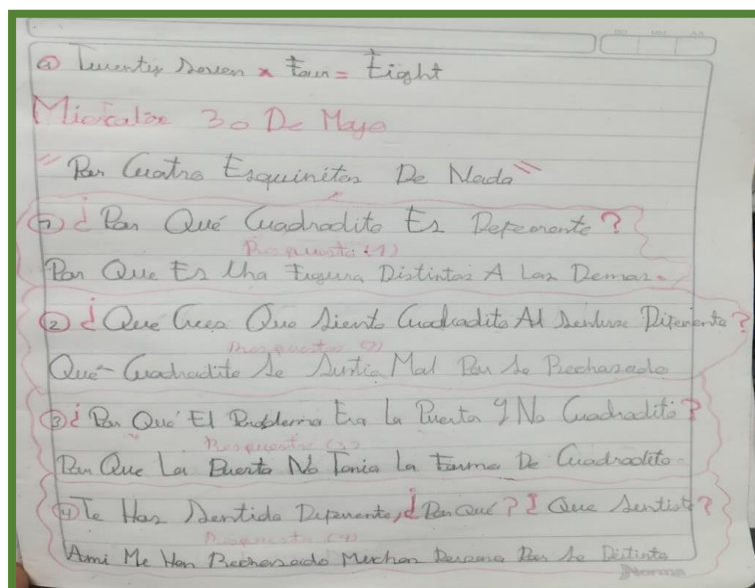 a Twenty Seven x Four = Eight
Miercoles 30 De Mayo
"Por Cuatro Esquinitas De Nada"
1) ¿Por Qué Cuadradito Es Deferente?
Respuesta (1)
Por Que Es Una Figura Distintas A Las Demas.
2 ¿Que Crees Que Siento Cuadradito Al Sentirse Diferente?
Respuesta (2)
Qué- Cuadradito Se Sintia Mal Por Se Rechasado
3 ¿Por Qué El Problema Era La Puerta Y No Cuadradito?
Respuesta (3)
Por Que La Puerta No Tonia La Forma De Cuadradito-
4 Te Has Sentido Diferente, ¿Por Qué? ¿Que Sentiste?
Respuesta (4)
Ami Me Han Rechasado Muchas Persona Por Se Distinto
Norma